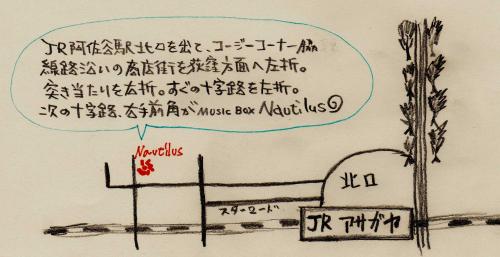 JR阿佐谷駅北口を出て、コージーコーナー脇
線路沿いの商店街を荻窪方面へ左折。
突き当たりを右折。すぐの十字路を左折。
次の十字路、右手前角がMUSIC BOX Nautilus
Nautilus
北口
スターロード
JR アサガヤ